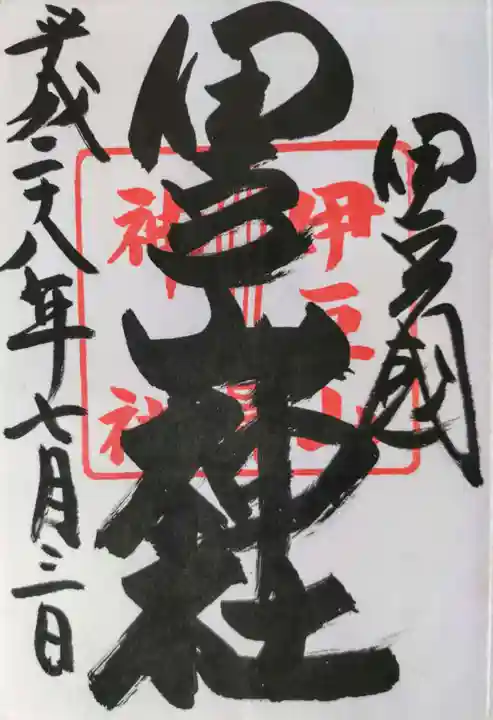 伊豆國
伊豆山神社
伊豆山
神社
平成二十八年七月三日